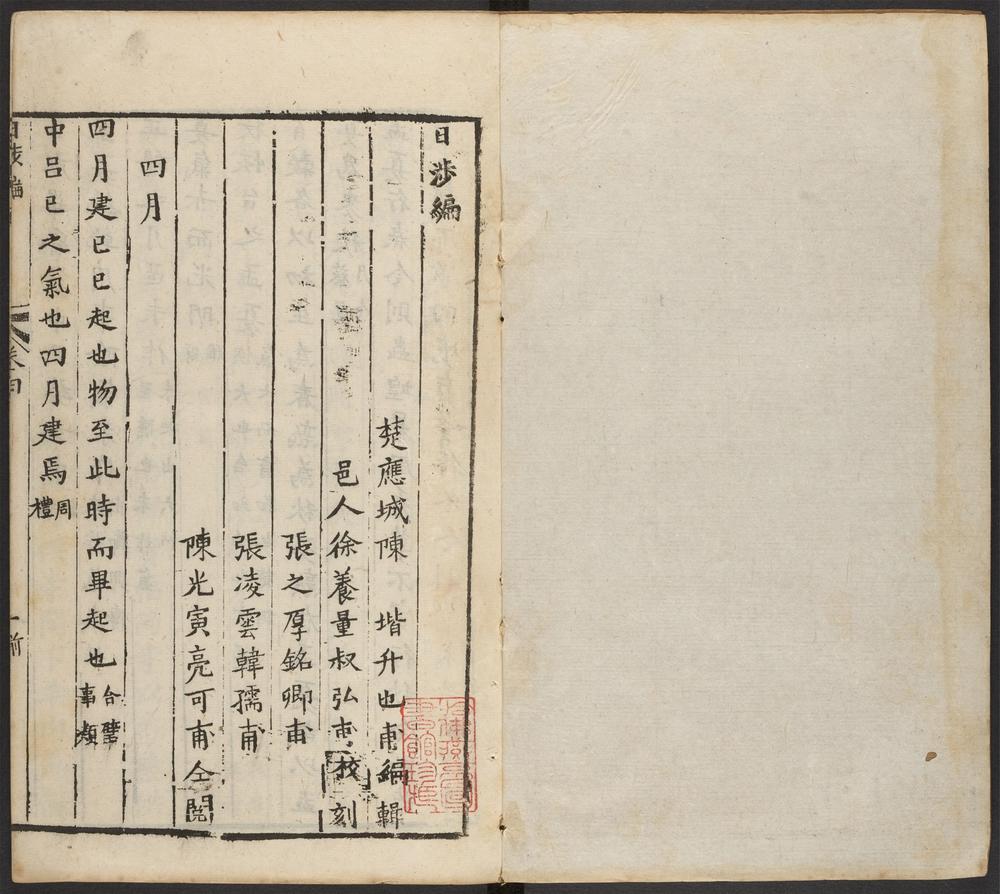 日涉編
楚應城陳 堦升也甫編輯
邑人徐養量叔弘甫校刻
張之厚銘卿甫
張凌雲韓孺甫
陳光寅亮可甫仝閱
四月
四月建巳巳起也物至此時而畢起也合璧事類
中呂巳之氣也四月建焉周禮
日涉編
卷四
一前